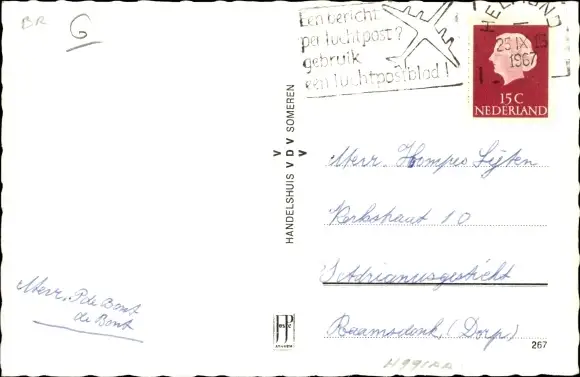 BR
G
Een bericht
per luchtpost?
gebruik
een luchtpostblad!
HELMOND
25 IX 15
1967
15 C
NEDERLAND
HANDELSHUIS V D V SOMEREN
V
V
Mevr. Hompes Lijten
Kerkstraat 10
S Adrianusgesticht
Raamsdonk, (Dorp.)
Mevr. P de Bont
de Bont
267